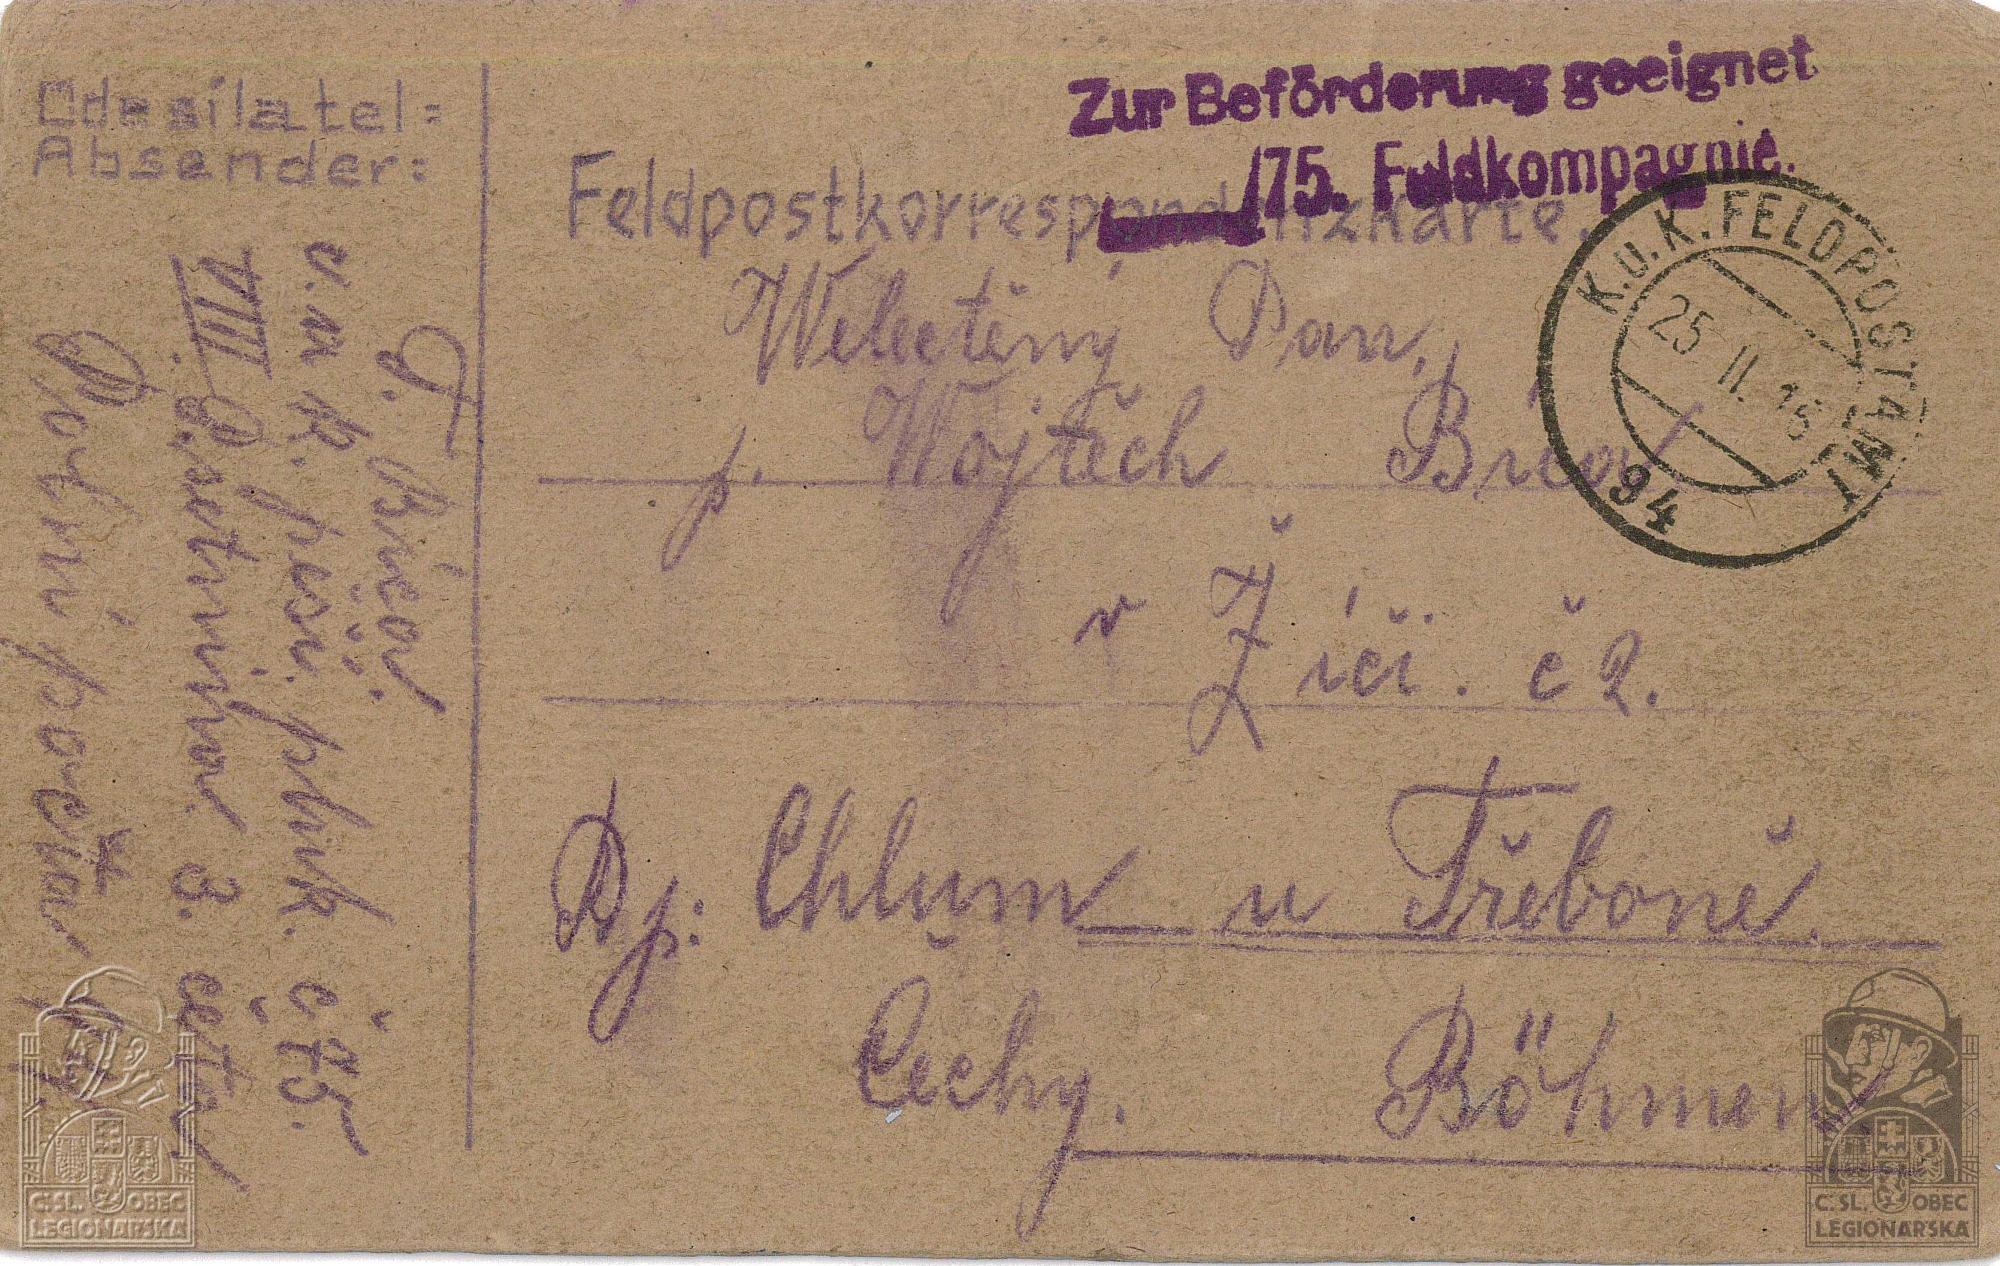 Odesílatel:
Absender:
T. Bríca
u. a k. pěší. pluk. č 75.
VIII. Osetnina 3. četa
Polní pošta
Zur Beförderung geeignet
/75. Feldkompagnie.
Feldpostkorrespondenzkarte.
K.u.K. FELDPOSTAMT
25 II. 16
94
Welectěný Pan,
p. Wojtěch Bríca
v Žíči. č 2.
Dp: Chlum u Třeboně.
Čechy. Böhmen
C.SL. OBEC
LEGIONARSKA
C.SL. OBEC
LEGIONARSKA